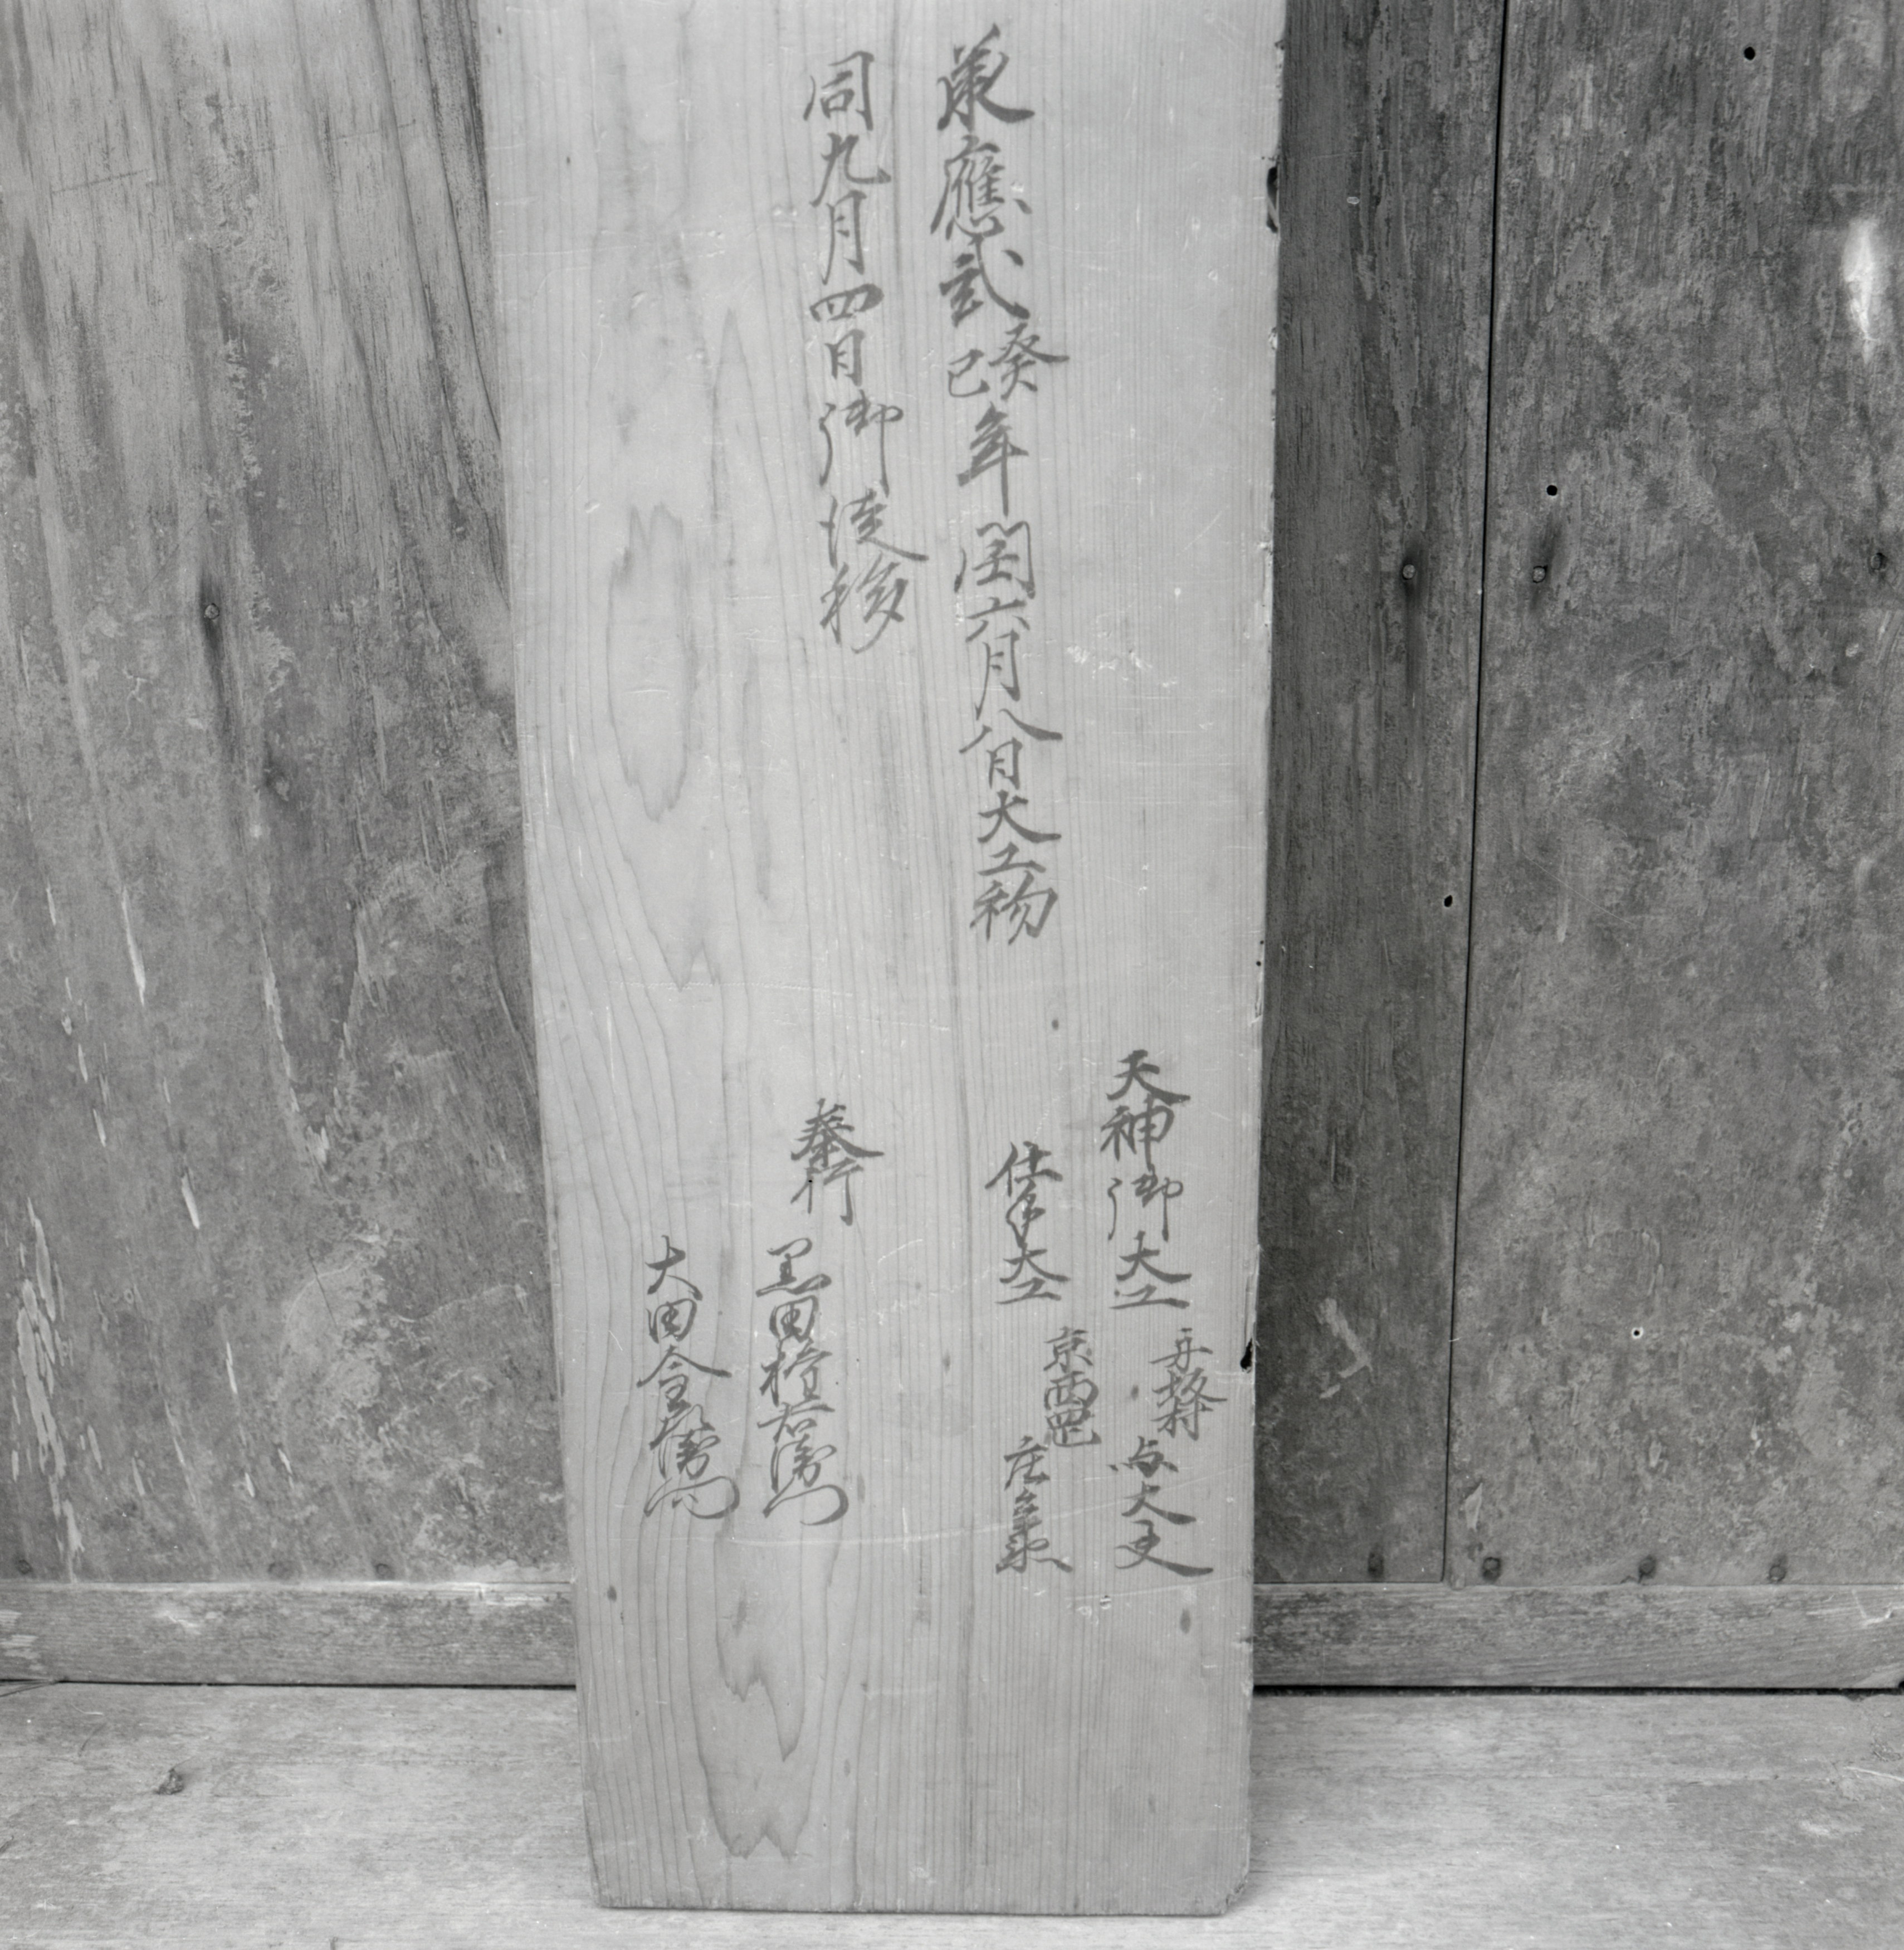 承應貳癸巳年閏六月八日大工初
同九月四日御遷移
天神御大工 井坂村 与大夫
仕手大工 京西岡 庄兵衛
奉行
黒田権右衛門
大田金左衛門